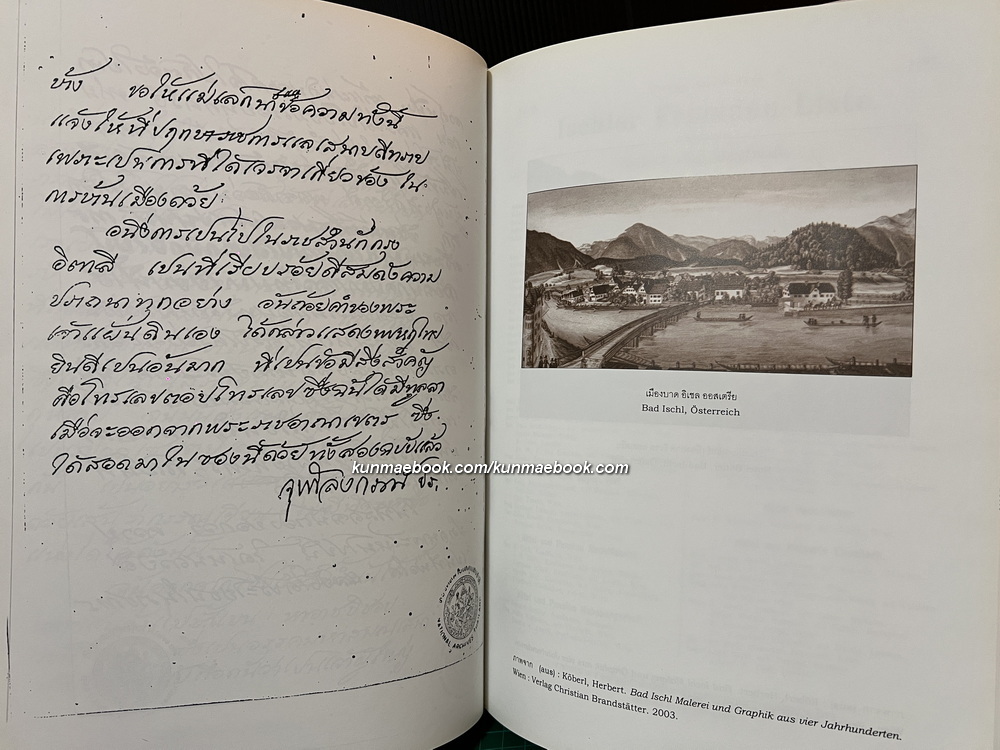 บ้าง ขอให้แม่เล็กนำข้อความทั้งนี้
แจ้งให้ที่ปฤกษาราชการแลเสนาบดีทราบ
เพราะเปนการที่ได้เจรจาเกี่ยวข้อง ใน
การบ้านเมืองด้วย
อนึ่งการเปนไปในราชสำนักกรุง
อิตาลี เปนที่เรียบร้อยดีสมดังความ
ปราถนาทุกอย่าง อันถ้อยคำของพระ
เจ้าแผ่นดินเอง ได้กล่าวแสดงพระไทย
ยินดีเปนอันมาก ที่เปนข้อมีสิ่งสำคัญ
คือโทรเลขตอบโทรเลขซึ่งฉันได้มีทูลลา
เมื่อจะออกจากพระราชอาณาเขตร ซึ่ง
ได้สอดมาในซองนี้ด้วยทั้งสองฉบับแล้ว
จุฬาลงกรณ์ ปร.
NATIONAL ARCHIVES
เมืองบาด อิเชล ออสเตรีย
Bad Ischl, Österreich
kunmaebook.com/kunmaebook.com
ภาพจาก (aus) : Köberl, Herbert. Bad Ischl Malerei und Graphik aus vier Jahrhunderten.
Wien : Verlag Christian Brandstätter. 2003.